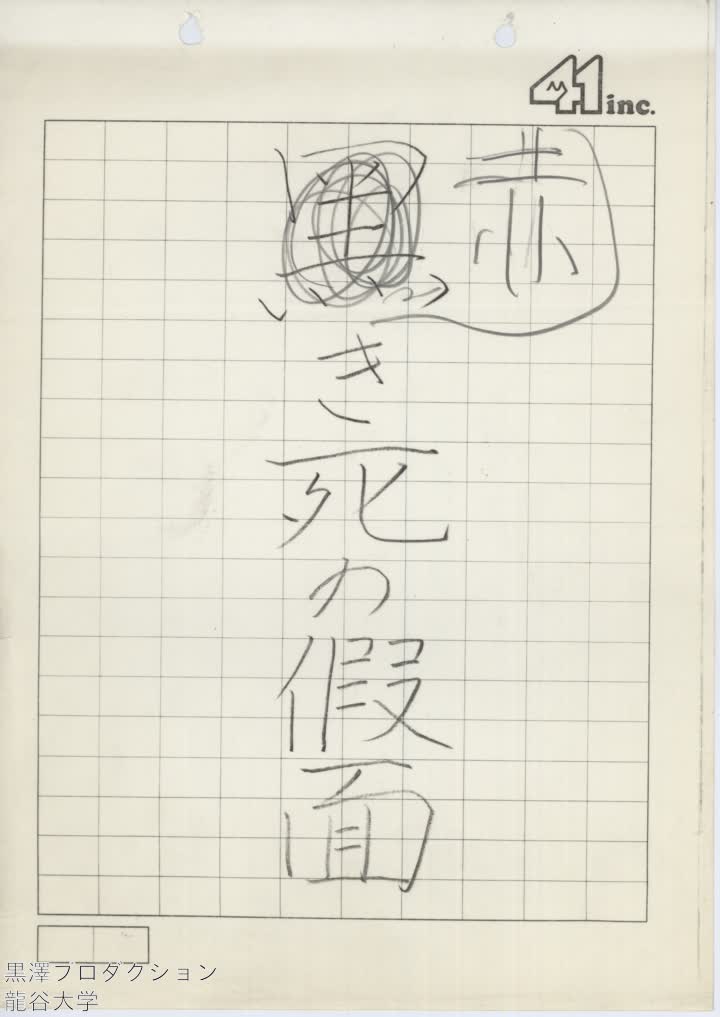 41 inc.
赤
黒き死の假面
黒澤プロダクション
龍谷大学